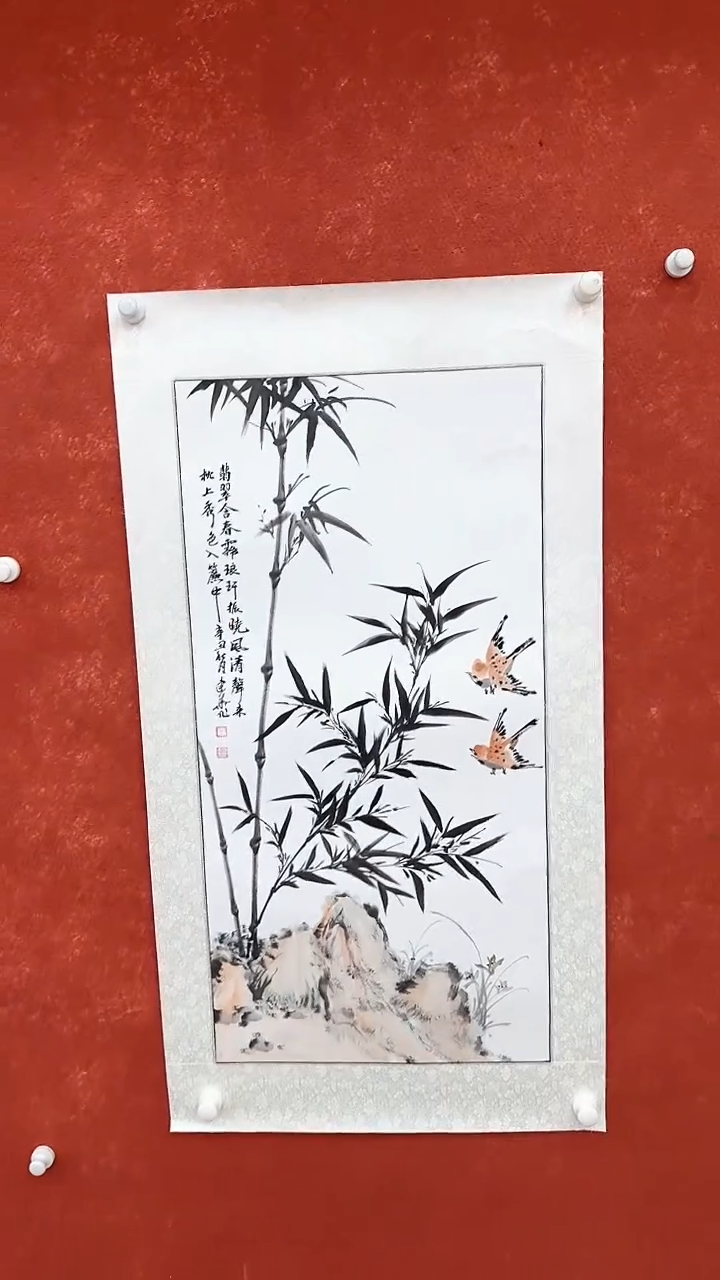 翡翠含春霖琅玕振曉風清聲來
枕上秀色入簾中
辛丑
作